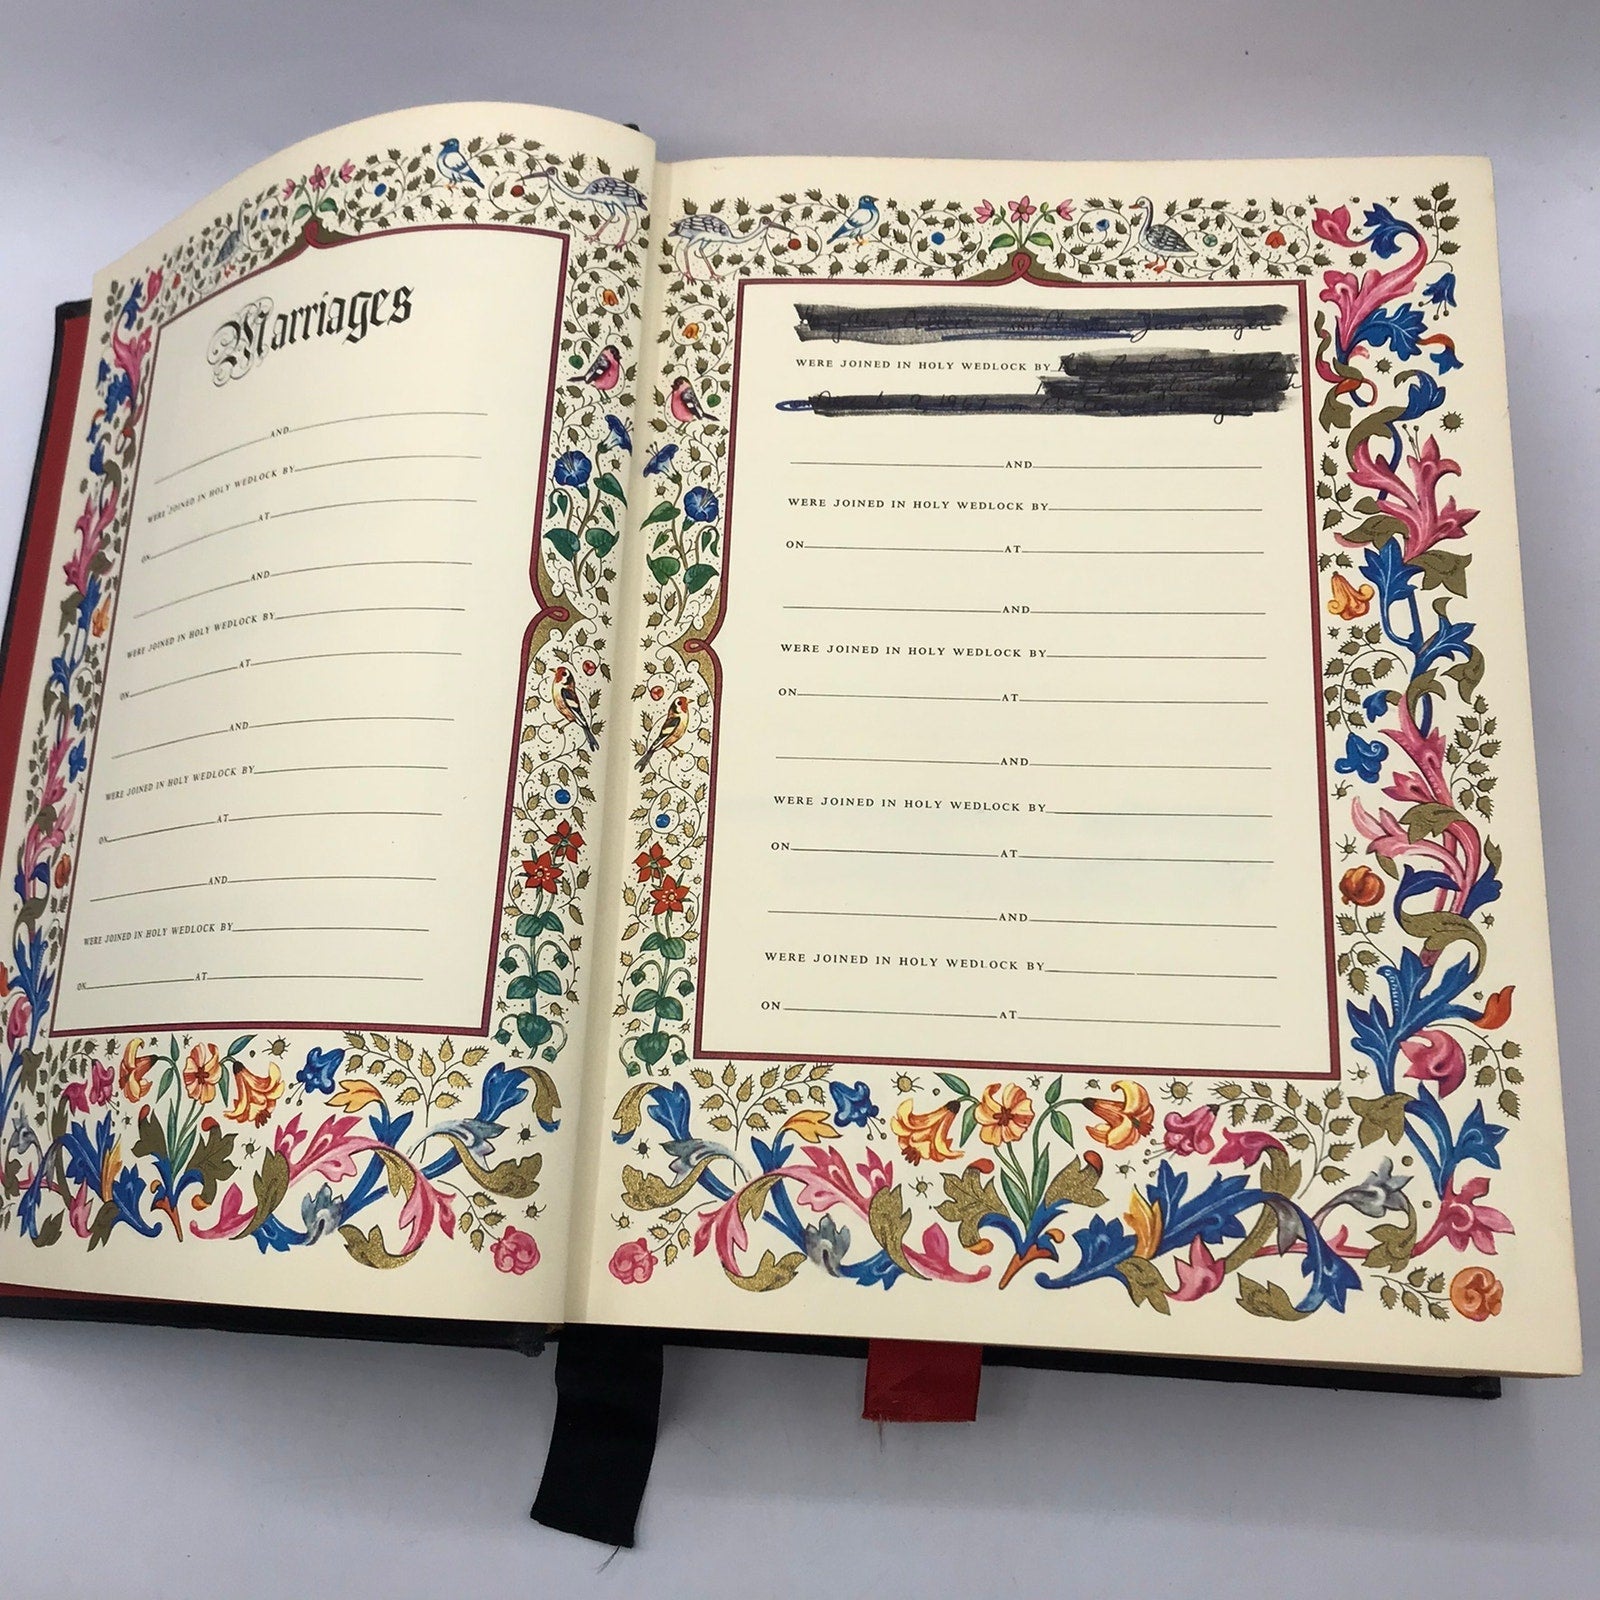 Marriages
AND
WERE JOINED IN HOLY WEDLOCK BY
ON AT
AND
WERE JOINED IN HOLY WEDLOCK BY
ON AT
AND
WERE JOINED IN HOLY WEDLOCK BY
ON AT
AND
WERE JOINED IN HOLY WEDLOCK BY
ON AT
AND Jane Sanger
WERE JOINED IN HOLY WEDLOCK BY
AND
WERE JOINED IN HOLY WEDLOCK BY
ON AT
AND
WERE JOINED IN HOLY WEDLOCK BY
ON AT
AND
WERE JOINED IN HOLY WEDLOCK BY
ON AT
AND
WERE JOINED IN HOLY WEDLOCK BY
ON AT